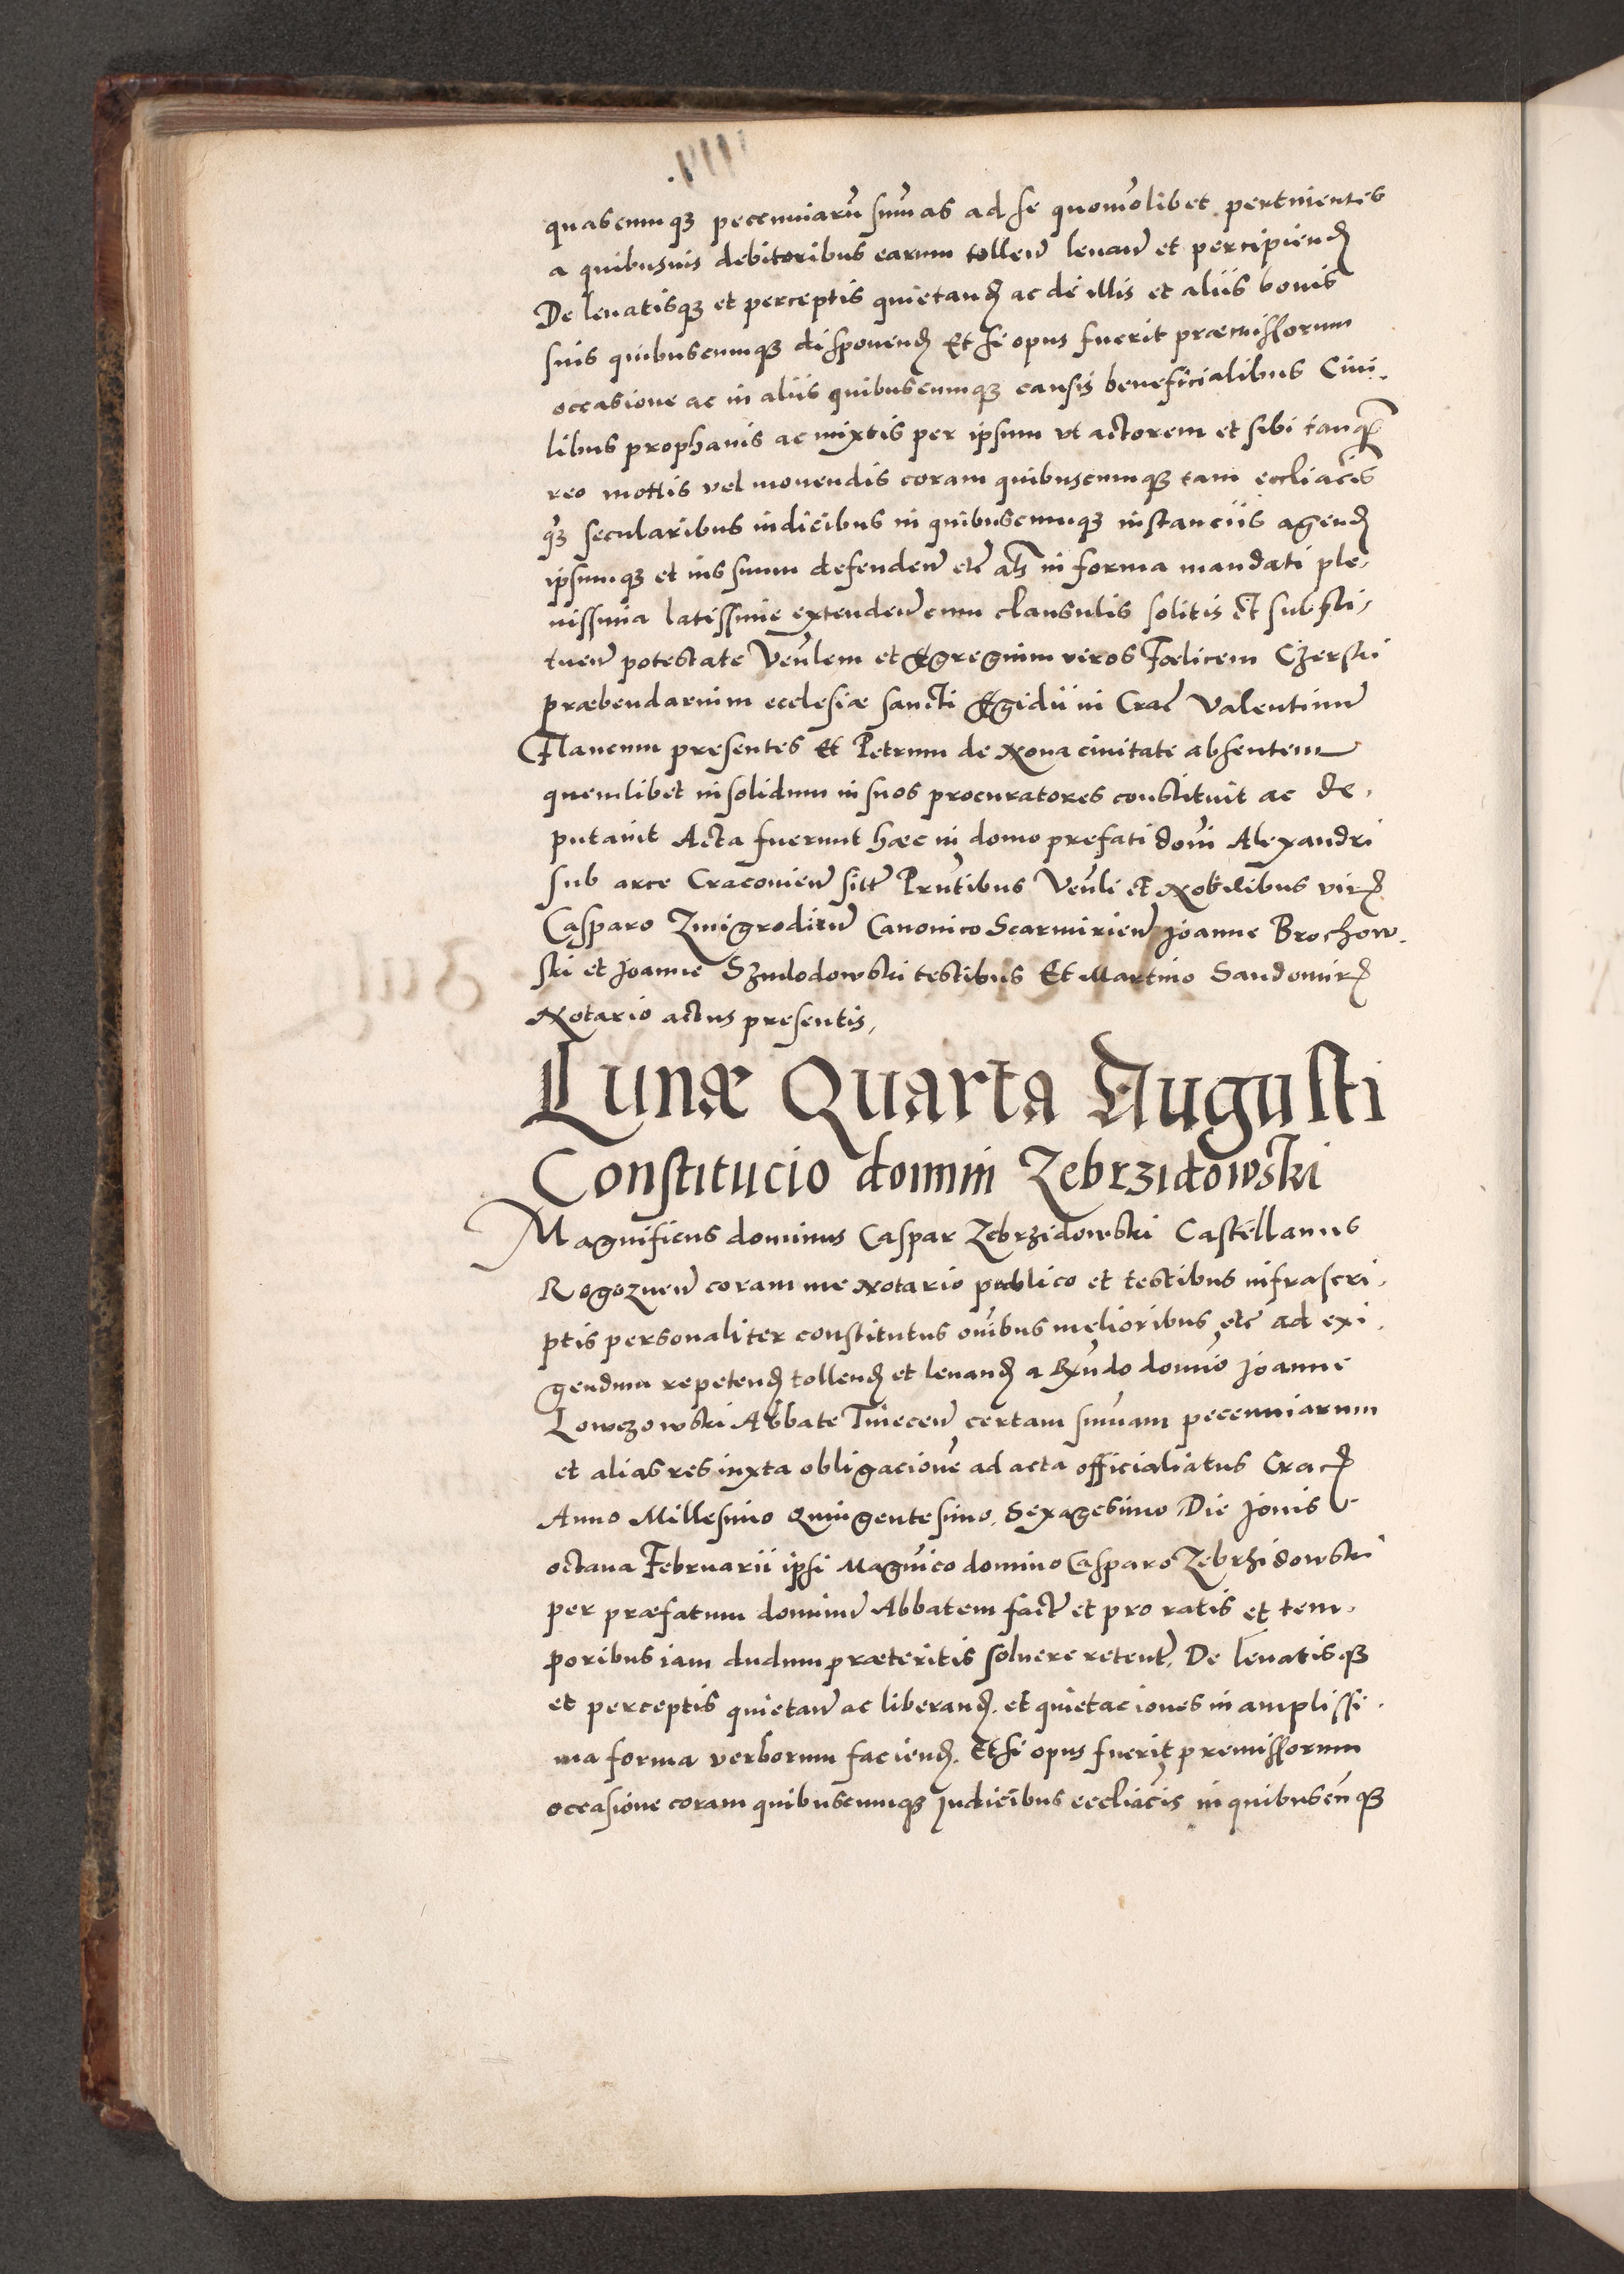 quascumqȝ pecenniarū sūmas ad se quomōlibet pertnientes
a quibusuis debitoribus earum tollen̄ leuan̄ et percipiend̄
De leuatisqȝ et perceptis quietand̄ ac de illis et aliis bonis
suis quibuscumqȝ disponend̄ Et si opus fuerit præmissorum
occasione ac in aliis quibuscumqȝ causis beneficialibus Ciui-
libus prophanis ac mixtis per ipsum vt actorem et sibi tanq̄
reo mottis vel mouendis coram quibuscumqȝ tam ecclīacīs
q̄ȝ secularibus iudicibus in quibuscumqȝ instanciis agend̄
ipsumqȝ et ius suum defenden̄ etc̄ al̄s in forma mandati ple-
nissima latissime extenden̄ cum clausulis solitis et substi-
tuen̄ potestate Veñlem et Egregium viros Fœlicem Czerski
præbendarium ecclesiæ sancti Egidii in Crac̄ Valentinum̄
Flancum presentes Et Petrum de Noua ciuitate absentem
quemlibet insolidum in suos procuratores constituit ac de-
putauit Acta fuerunt hæc in domo prefati domī Alexandri
sub arce Cracouien̄ sitt̄ Pr̄ntibus Veñli et Nobilibus vird̄
Casparo Zmigrodien̄ Canonico Scarmirien̄ Joanne Brochow-
ski et Joanne Szmlodowski testibus Et Martino Sandomird̄
Notario actus presentis,
Lunæ Quarta Augusti
Constitucio domini Zebrzidowski
Magnificus dominus Caspar Zebrzidowski Castellanus
Rogoznen̄ coram me Notario publico et testibus infrascri-
ptis personaliter constitutus om̄ibus melioribus etc̄ ad exi-
gendum repetend̄ tollend̄ et leuand̄ a R̄ndo domīo Joanne
Lowczowski Abbate Tinecen̄ certam sum̄am pecenniarum
et alias res iuxta obligacionē ad acta officialiatus Crac̄
Anno Millesimo Quingentesimo, Sexagesimo Die Jouis
octaua Februarii ipsi Magn̄ico domino Casparo Zebrzidowski
per præfatum dominum̄ Abbatem fact̄ et pro ratis et tem-
poribus iam dudum præteritis soluere retent̄. De leuatisqȝ
et perceptis quietan̄ ac liberand̄. et quietaciones in amplissi-
ma forma verborum faciend̄. Et si opus fuerit premissorum
occasione coram quibuscumqȝ Judicibus ecclīacīs in quibuscūqȝ